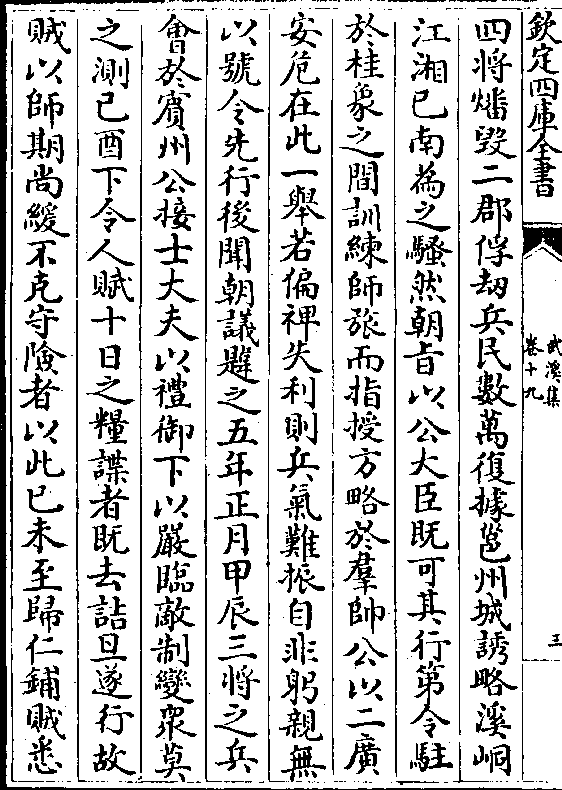 欽定四庫全書
武溪集
卷十九
三
四將燔毀二郡俘劫兵民數萬復據邕州城誘略溪峒
江湘已南為之騷然朝旨以公大臣既可其行第令駐
於桂象之間訓練師旅而指授方略於羣帥公以二廣
安危在此一舉若偏裨失利則兵氣難振自非躬親無
以號令先行後聞朝議韙之五年正月甲辰三將之兵
會於賓州公接士大夫以禮御下以嚴臨敵制變衆莫
之測己酉下令人賦十日之糧諜者既去詰旦遂行故
賊以師期尚緩不克守險者以此已未至歸仁鋪賊悉